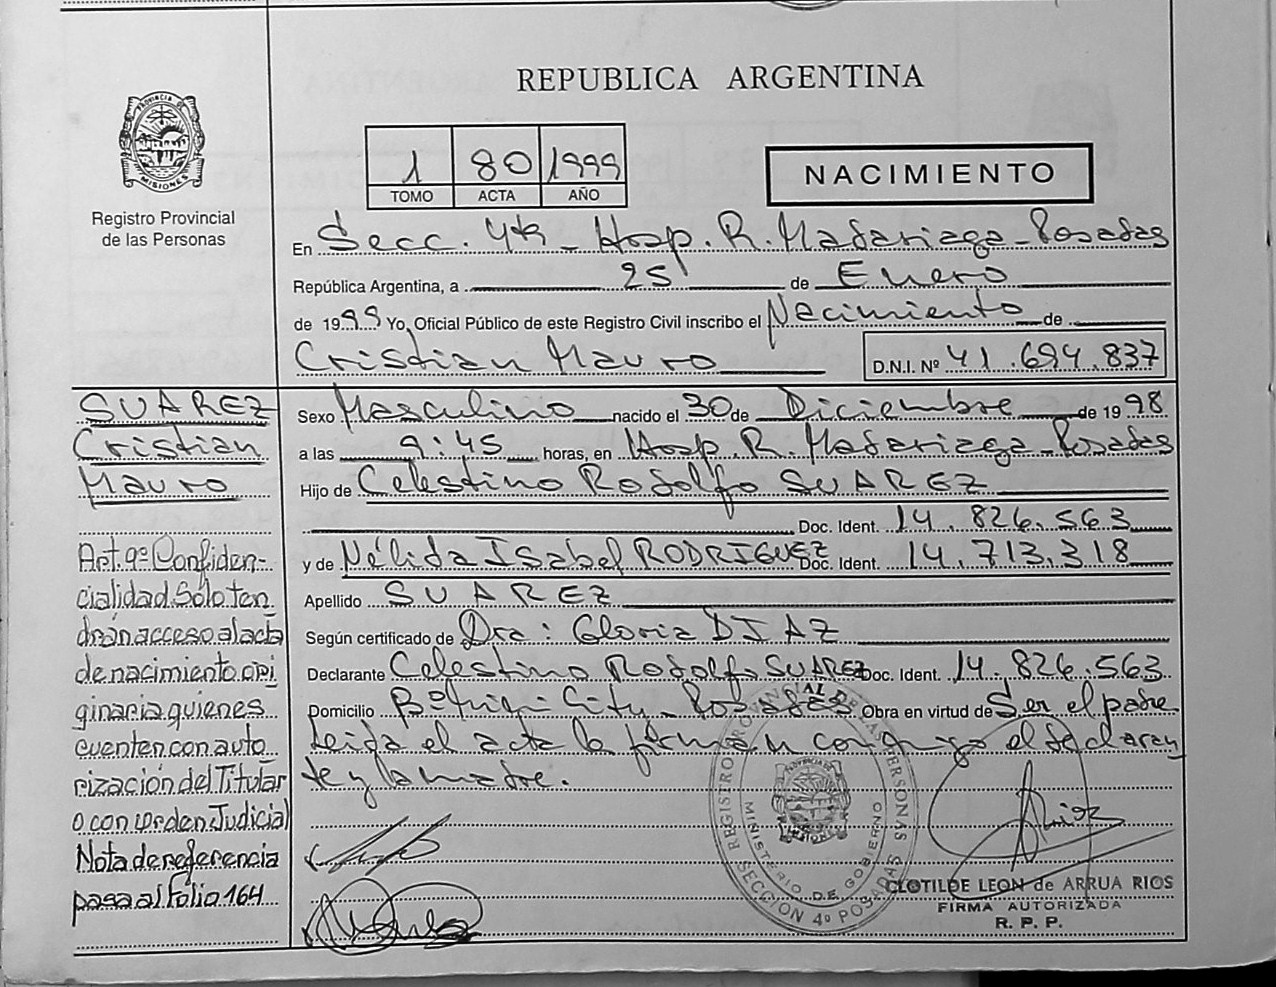 REPUBLICA ARGENTINA
PROVINCIA DE
MISIONES
Registro Provincial
de las Personas
1 80 1999
TOMO ACTA AÑO
NACIMIENTO
En Secc. 4ta - Hosp. R. Madariaga - Posadas
República Argentina, a 25 de Enero
de 1999 Yo, Oficial Público de este Registro Civil inscribo el Nacimiento de
Cristian Mauro D.N.I. Nº 41.694.837
SUAREZ
Cristian
Mauro
Art. 9º Confiden-
cialidad Sólo ten
drán acceso al acta
de nacimiento ori
ginaria quienes
cuenten con auto
rización del Titular
o con orden Judicial
Nota de referencia
pasa al Folio 164
Sexo Masculino nacido el 30 de Diciembre de 1998
a las 9:45 horas, en Hosp. R. Madariaga - Posadas
Hijo de Celestino Rodolfo SUAREZ
Doc. Ident. 14.826.563
y de Nélida Isabel RODRIGUEZ Doc. Ident. 14.713.318
Apellido SUAREZ
Según certificado de Dra: Gloria DIAZ
Declarante Celestino Rodolfo SUAREZ Doc. Ident. 14.826.563
Domicilio Bº City - Posadas Obra en virtud de Ser el padre
Leida el acta la firman conmigo el declaran
te y la madre.
REGISTRO PROVINCIAL DE LAS PERSONAS
MINISTERIO DE GOBIERNO
SECCION 4º POSADAS
CLOTILDE LEON de ARRUA RIOS
FIRMA AUTORIZADA
R. P. P.